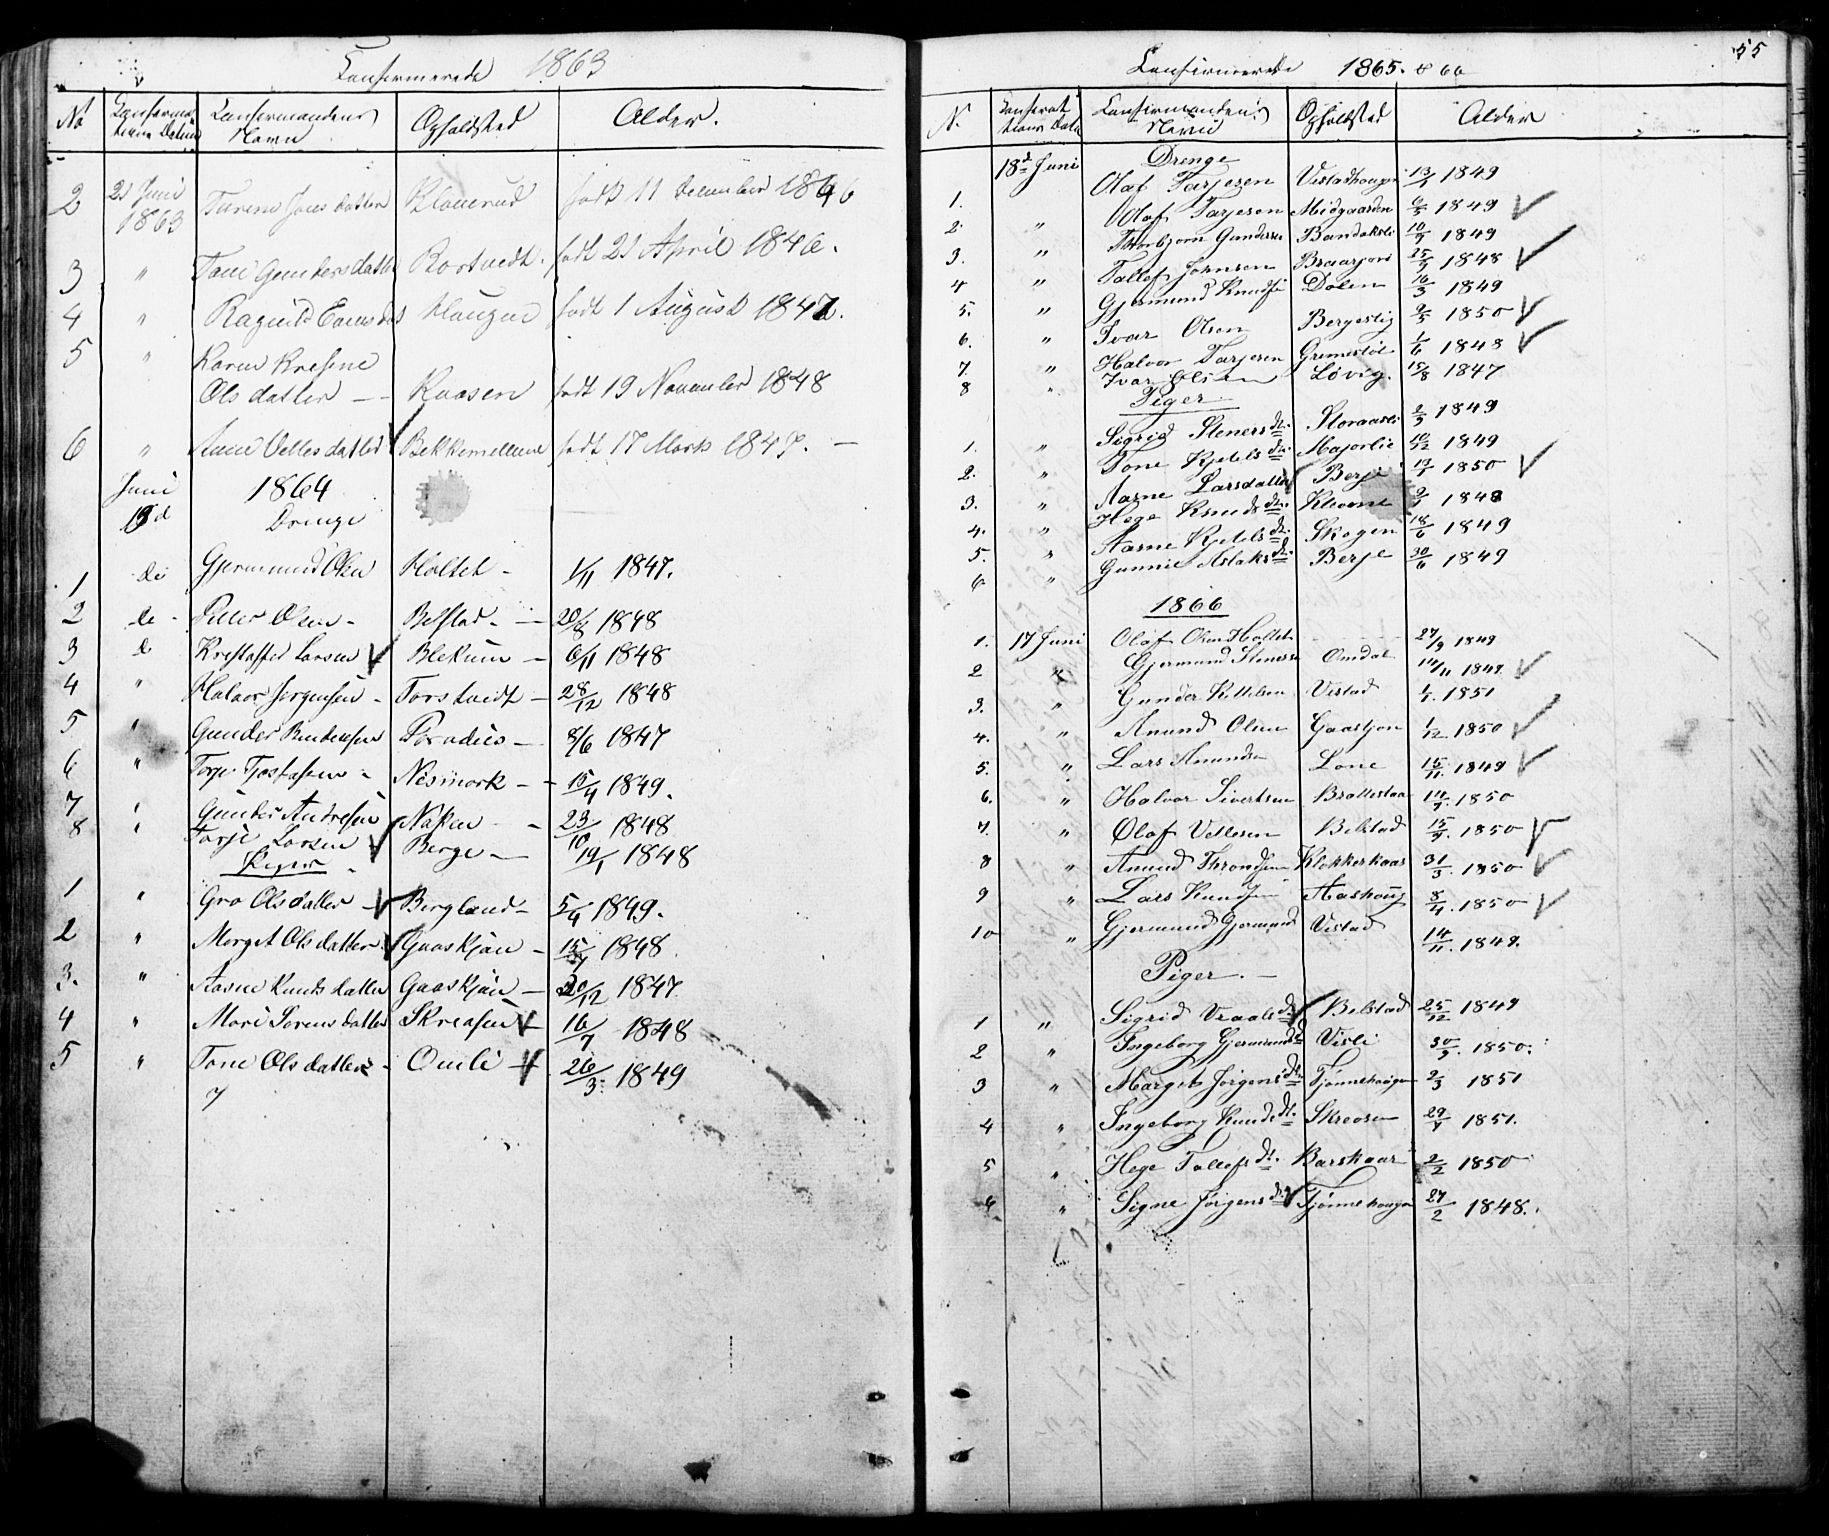 Confirmerede 1863
No Confirmations Datum Confirmandens Navn Opholdsted Alder.
2 21 Juni 1863 Turene Jons datter Klonerud født 11 December 1846
3 " Tone Gunders datter Rostvedt. født 21 April 1846.
4 " Ragnild Evens dat Haugen født 1 August 1847.
5 " Karen Kresine
Ols datter -- Kaasen født 19 November 1848
6 " Anne Vetles datter Bekkemellum født 17 Marts 1847. -
Juni 1864
19d Drenge
1 do Gjermund Olsen Holtet - 1/11 1847.
2 do - Peder Olsen - Belstad - 20/8 1848
3 do Krestaffer Larsen Blekum - 6/11 1848
4 " Halvor Jorgensen - Torstvedt - 28/12 1848
5 " Gunder Bentensen Paradiis - 8/6 1847
6 " Torje Tjostafsen - Nismork - 15/4 1849.
7 " Gunder Andresen Naper - 23/10 1848
8 " Torje Larsen Berge - 19/1 1848
Piger
1 " Gro Ols datter - Bergland - 5/4 1849.
2 " Marget Ols datter. Gaaskjøn - 15/7 1848.
3. " Aasne Knuds datter Gaaskjøn - 20/12 1847
4 " Mari Sorens datter Skreosen 16/7 1848
5 " Tone Ols datter - Omli 26/3. 1849
7
55
Confirmerede 1865. & 66
N. Confirmations Dato Confirmandens Navn Opholdsted Alder
18d Juni Drenge
1. Olaf Tarjesen Vistadhaugen 13/1 1849
2. " Olaf Tarjesen Midgaarden 6/5 1849
3. " Thorbjørn Gundersen Bandaksli 10/9 1849
4 " Tallef Jørnsen 25/9 1848
5. " Gjermund Knudsen Dalen 16/3 1849
6. " Ivar Olsen Bergestig 9/5 1850
7. " Halvor Tarjesen Gremestøl 1/6 1848
8 " Ivar Olsen Løvig. 15/8 1847
Piger
1. " Sigrid Steners dt. 2/3 1849
2. " Tone Kjetels dt. Majorlie 10/12 1849
3. " Aasne Larsdatter Berje 13/1 1850
4. " Hege Knuds dt. 1848
5. " Aasne Kjetels dt. Skogen 18/6 1849
6. " Gunnie Aslaks dt. Berje 30/6 1849
1866
1. 17 Juni Olaf Olsen Holtet - - - 27/9 1849
2 " Gjermund Stenersen Omdal 14/11 1849.
3. " Gunder Kittelsen Vistad 1/1. 1851
4. " Anund Olsen Gaaskjøn 1/12. 1850
5. " Lars Amundsen Lone 15/11. 1849
6. " Halvor Sivertsen Brattestaa 14/7. 1850
7. " Olaf Vetlesen Belstad 15/9. 1850
8 " Anund Throndsen Klokkerkaas 31/3. 1850
9 " Lars Knudsen Aashoug 8/4. 1850
10 " Gjermund Gjermunds Vistad 14/11. 1849.
Piger. -
1 " Sigrid Vraals dt. Belstad 25/12. 1849
2 " Ingeborg Gjermunds dt. Visli 30/3. 1850.
3 " Marget Jørgens dt. Tjønnehougen 2/3 1851
4 " Ingeborg Knuds dt. Skreosen 29/4 1851.
5 " Hege Tallefs dt. Barskaar 2/2 1850
6 " Signe Jørgens dt. Tjønnehougen 27/2 1848.